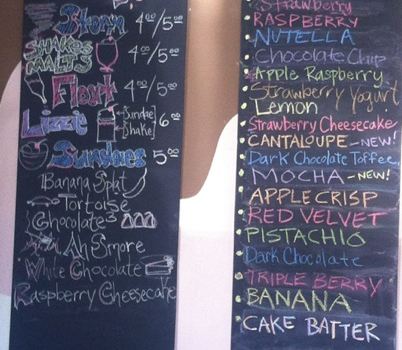 Storm 4.00/5.00
SHAKES 4.00/5.00
MALTS
Float 4.00/5.00
Lizzie Sundae 6.00
Shake
Sundaes 5.00
Banana Split
Tortoise
Chocolate 3
Ah S'more
White Chocolate
Raspberry Cheesecake
Strawberry
RASPBERRY
NUTELLA
Chocolate Chip
Apple Raspberry
Strawberry Yogurt
Lemon
Strawberry Cheesecake
CANTALOUPE - NEW!
Dark Chocolate Toffee
MOCHA - NEW!
APPLE CRISP
RED VELVET
PISTACHIO
Dark Chocolate
TRIPLE BERRY
BANANA
CAKE BATTER